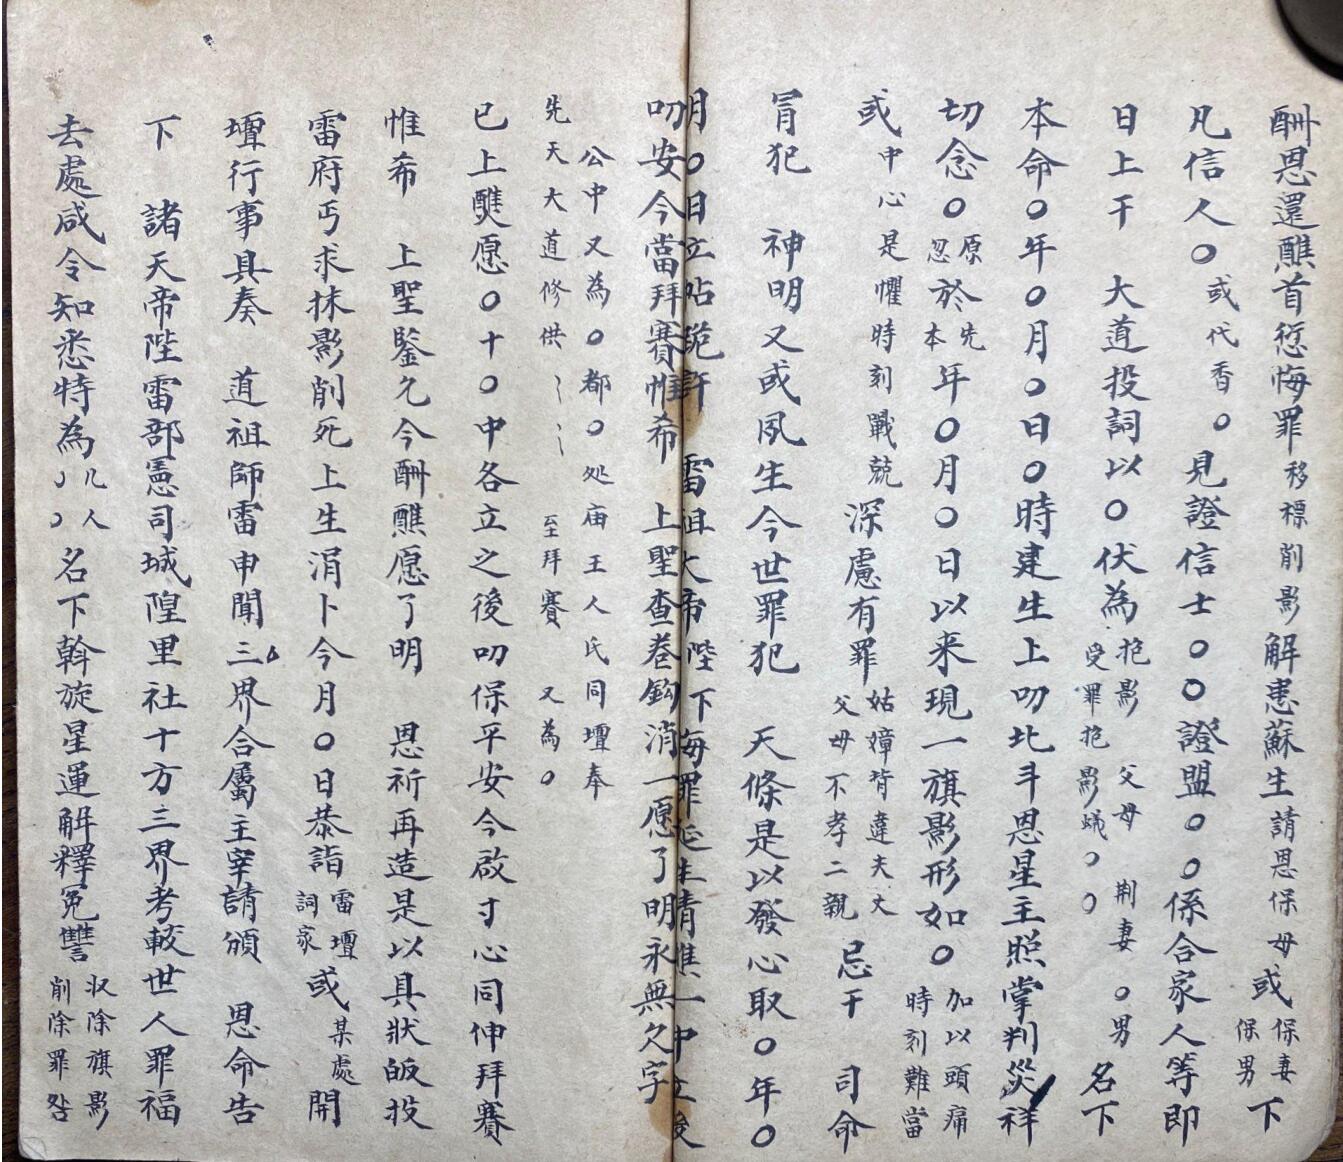 酬恩還醮首愆悔罪移標削影解患蘇生請恩保母或保妻保男下
凡信人〇或代香〇見證信士〇〇證盟〇〇係合家人等即
日上干 大道投詞以〇伏為抱影受罪抱影蟻〇〇父母荆妻〇男名下
本命〇年〇月〇日〇時建生上叨北斗恩星主照掌判災祥
切念〇原忽於先本年〇月〇日以来現一旗影形如〇加以頭痛時刻難當
或中心是懼時刻戰兢深慮有罪姑嫜背違夫丈父母不孝二親忌干 司命
冐犯 神明又或夙生今世罪犯 天條是以發心取〇年〇
月〇日立帖跪許 雷祖大帝陛下悔罪延生請醮一中立後
叨安今當拜賽惟希 上聖查卷鈎消一愿了明永無欠字
公中又為〇都〇处庙王人氏同壇奉
先天大道修供 至拜賽 又為〇
已上醮愿〇十〇中各立之後叨保平安今啟寸心同伸拜賽
惟希 上聖鑒允今酬醮愿了明 恩祈再造是以具狀皈投
雷府丐求抹影削死上生涓卜今月〇日恭詣雷壇詞家或某處開
壇行事具奏 道祖師雷申聞三界合屬主宰請頒 恩命告
下 諸天帝陛雷部憲司城隍里社十方三界考較世人罪福
去處咸令知悉特為几人名下斡旋星運解釋冤讐収除旗影削除罪名